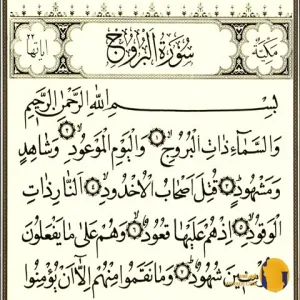 سُورَةُ الْبُرُوجِ
مَكِّيَّة
آيَاتُهَا ٢٢
بِسْمِ اللَّهِ الرَّحْمَٰنِ الرَّحِيمِ
وَالسَّمَاءِ ذَاتِ الْبُرُوجِ ١ وَالْيَوْمِ الْمَوْعُودِ ٢ وَشَاهِدٍ
وَمَشْهُودٍ ٣ قُتِلَ أَصْحَابُ الْأُخْدُودِ ٤ النَّارِ ذَاتِ
الْوَقُودِ ٥ إِذْ هُمْ عَلَيْهَا قُعُودٌ ٦ وَهُمْ عَلَىٰ مَا يَفْعَلُونَ
شُهُودٌ ٧ وَمَا نَقَمُوا مِنْهُمْ إِلَّا أَنْ يُؤْمِنُوا